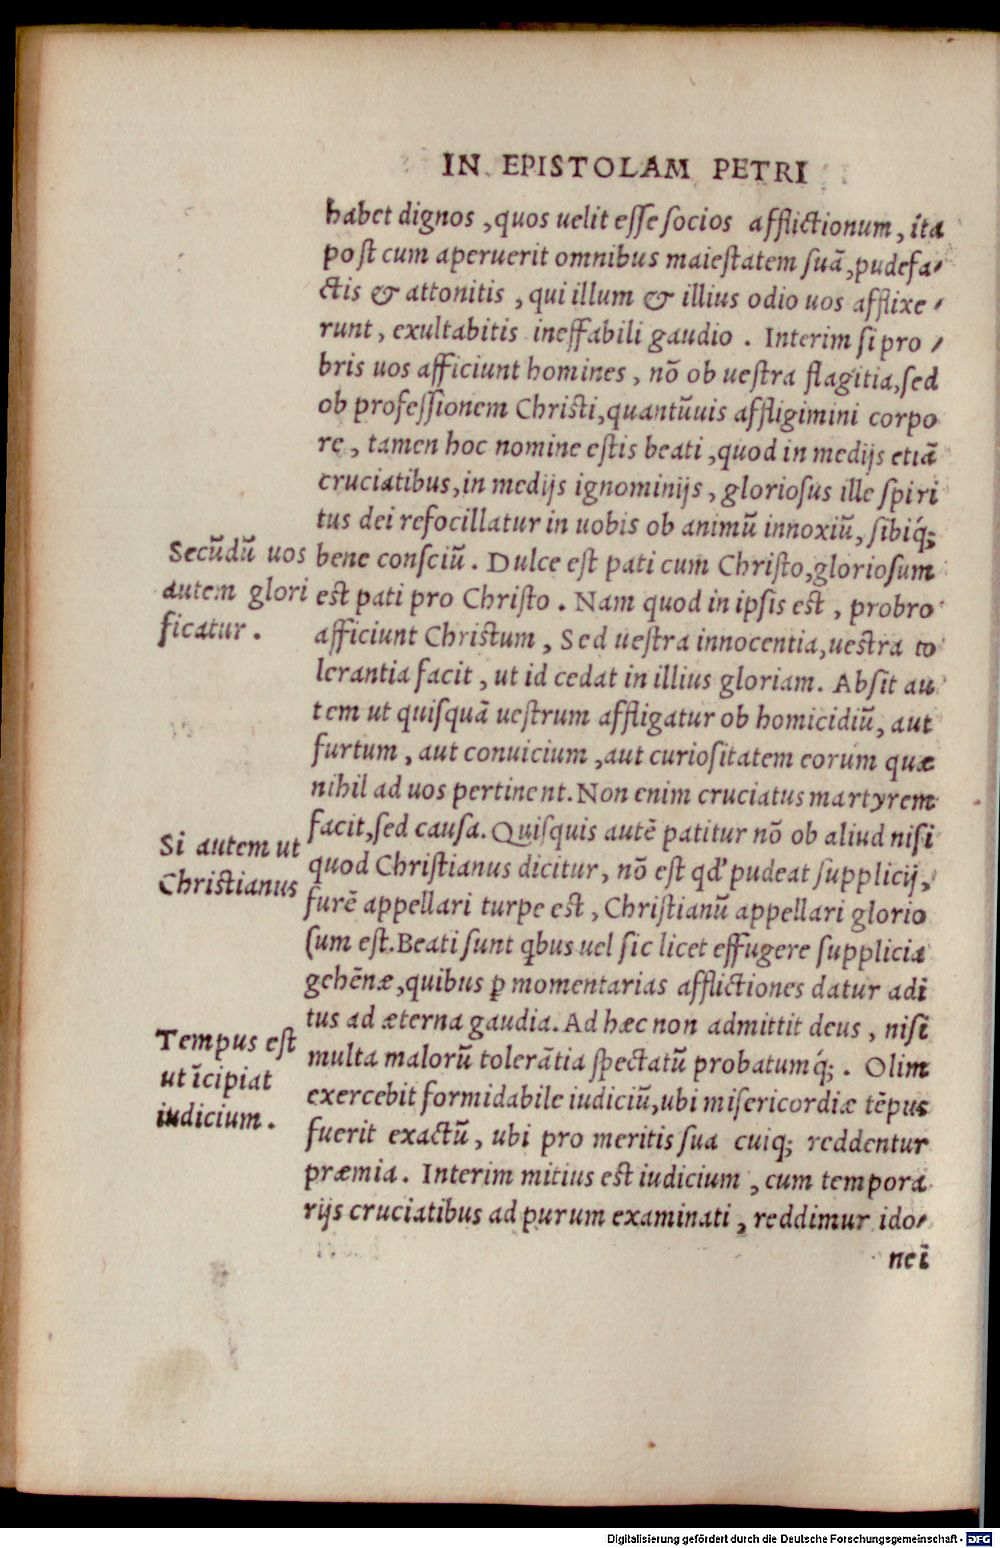 IN EPISTOLAM PETRI
habet dignos, quos uelit esse socios afflictionum, ita
post cum aperuerit omnibus maiestatem suã, pudefa-
ctis & attonitis, qui illum & illius odio uos afflixe-
runt, exultabitis ineffabili gaudio. Interim si pro-
bris uos afficiunt homines, nõ ob uestra flagitia, sed
ob professionem Christi, quantũuis affligimini corpo
re, tamen hoc nomine estis beati, quod in medijs etiã
cruciatibus, in medijs ignominijs, gloriosus ille spiri
tus dei refocillatur in uobis ob animũ innoxiũ, sibiq́;
bene consciũ. Dulce est pati cum Christo, gloriosum
est pati pro Christo. Nam quod in ipsis est, probro
afficiunt Christum, Sed uestra innocentia, uestra to
lerantia facit, ut id cedat in illius gloriam. Absit au
tem ut quisquã uestrum affligatur ob homicidiũ, aut
furtum, aut conuicium, aut curiositatem eorum quæ
nihil ad uos pertinent. Non enim cruciatus martyrem
facit, sed causa. Quisquis autẽ patitur nõ ob aliud nisi
quod Christianus dicitur, nõ est qď pudeat supplicij,
furẽ appellari turpe est, Christianũ appellari glorio
sum est. Beati sunt qbus uel sic licet effugere supplicia
gehẽnæ, quibus ꝑ momentarias afflictiones datur adi
tus ad æterna gaudia. Ad hæc non admittit deus, nisi
multa malorũ tolerãtia spectatũ probatumq́;. Olim
exercebit formidabile iudiciũ, ubi misericordiæ tẽpus
fuerit exactũ, ubi pro meritis sua cuiq; reddentur
præmia. Interim mitius est iudicium, cum tempora
rijs cruciatibus ad purum examinati, reddimur ido-
nei
Secũdũ uos
autem glori
ficatur.
Si autem ut
Christianus
Tempus est
ut ĩcipiat
iudicium.
Digitalisierung gefördert durch die Deutsche Forschungsgemeinschaft - DFG